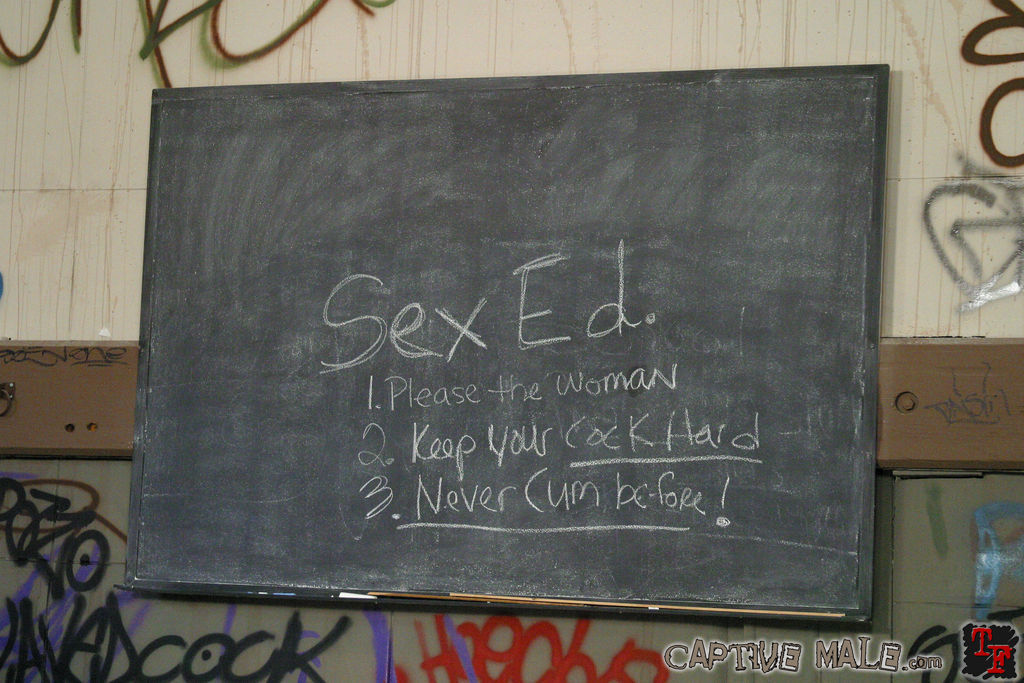 Sex Ed.
1. Please the woman
2. Keep your Cock Hard
3. Never Cum before!
COCK
CAPTIVE MALE.com
TF